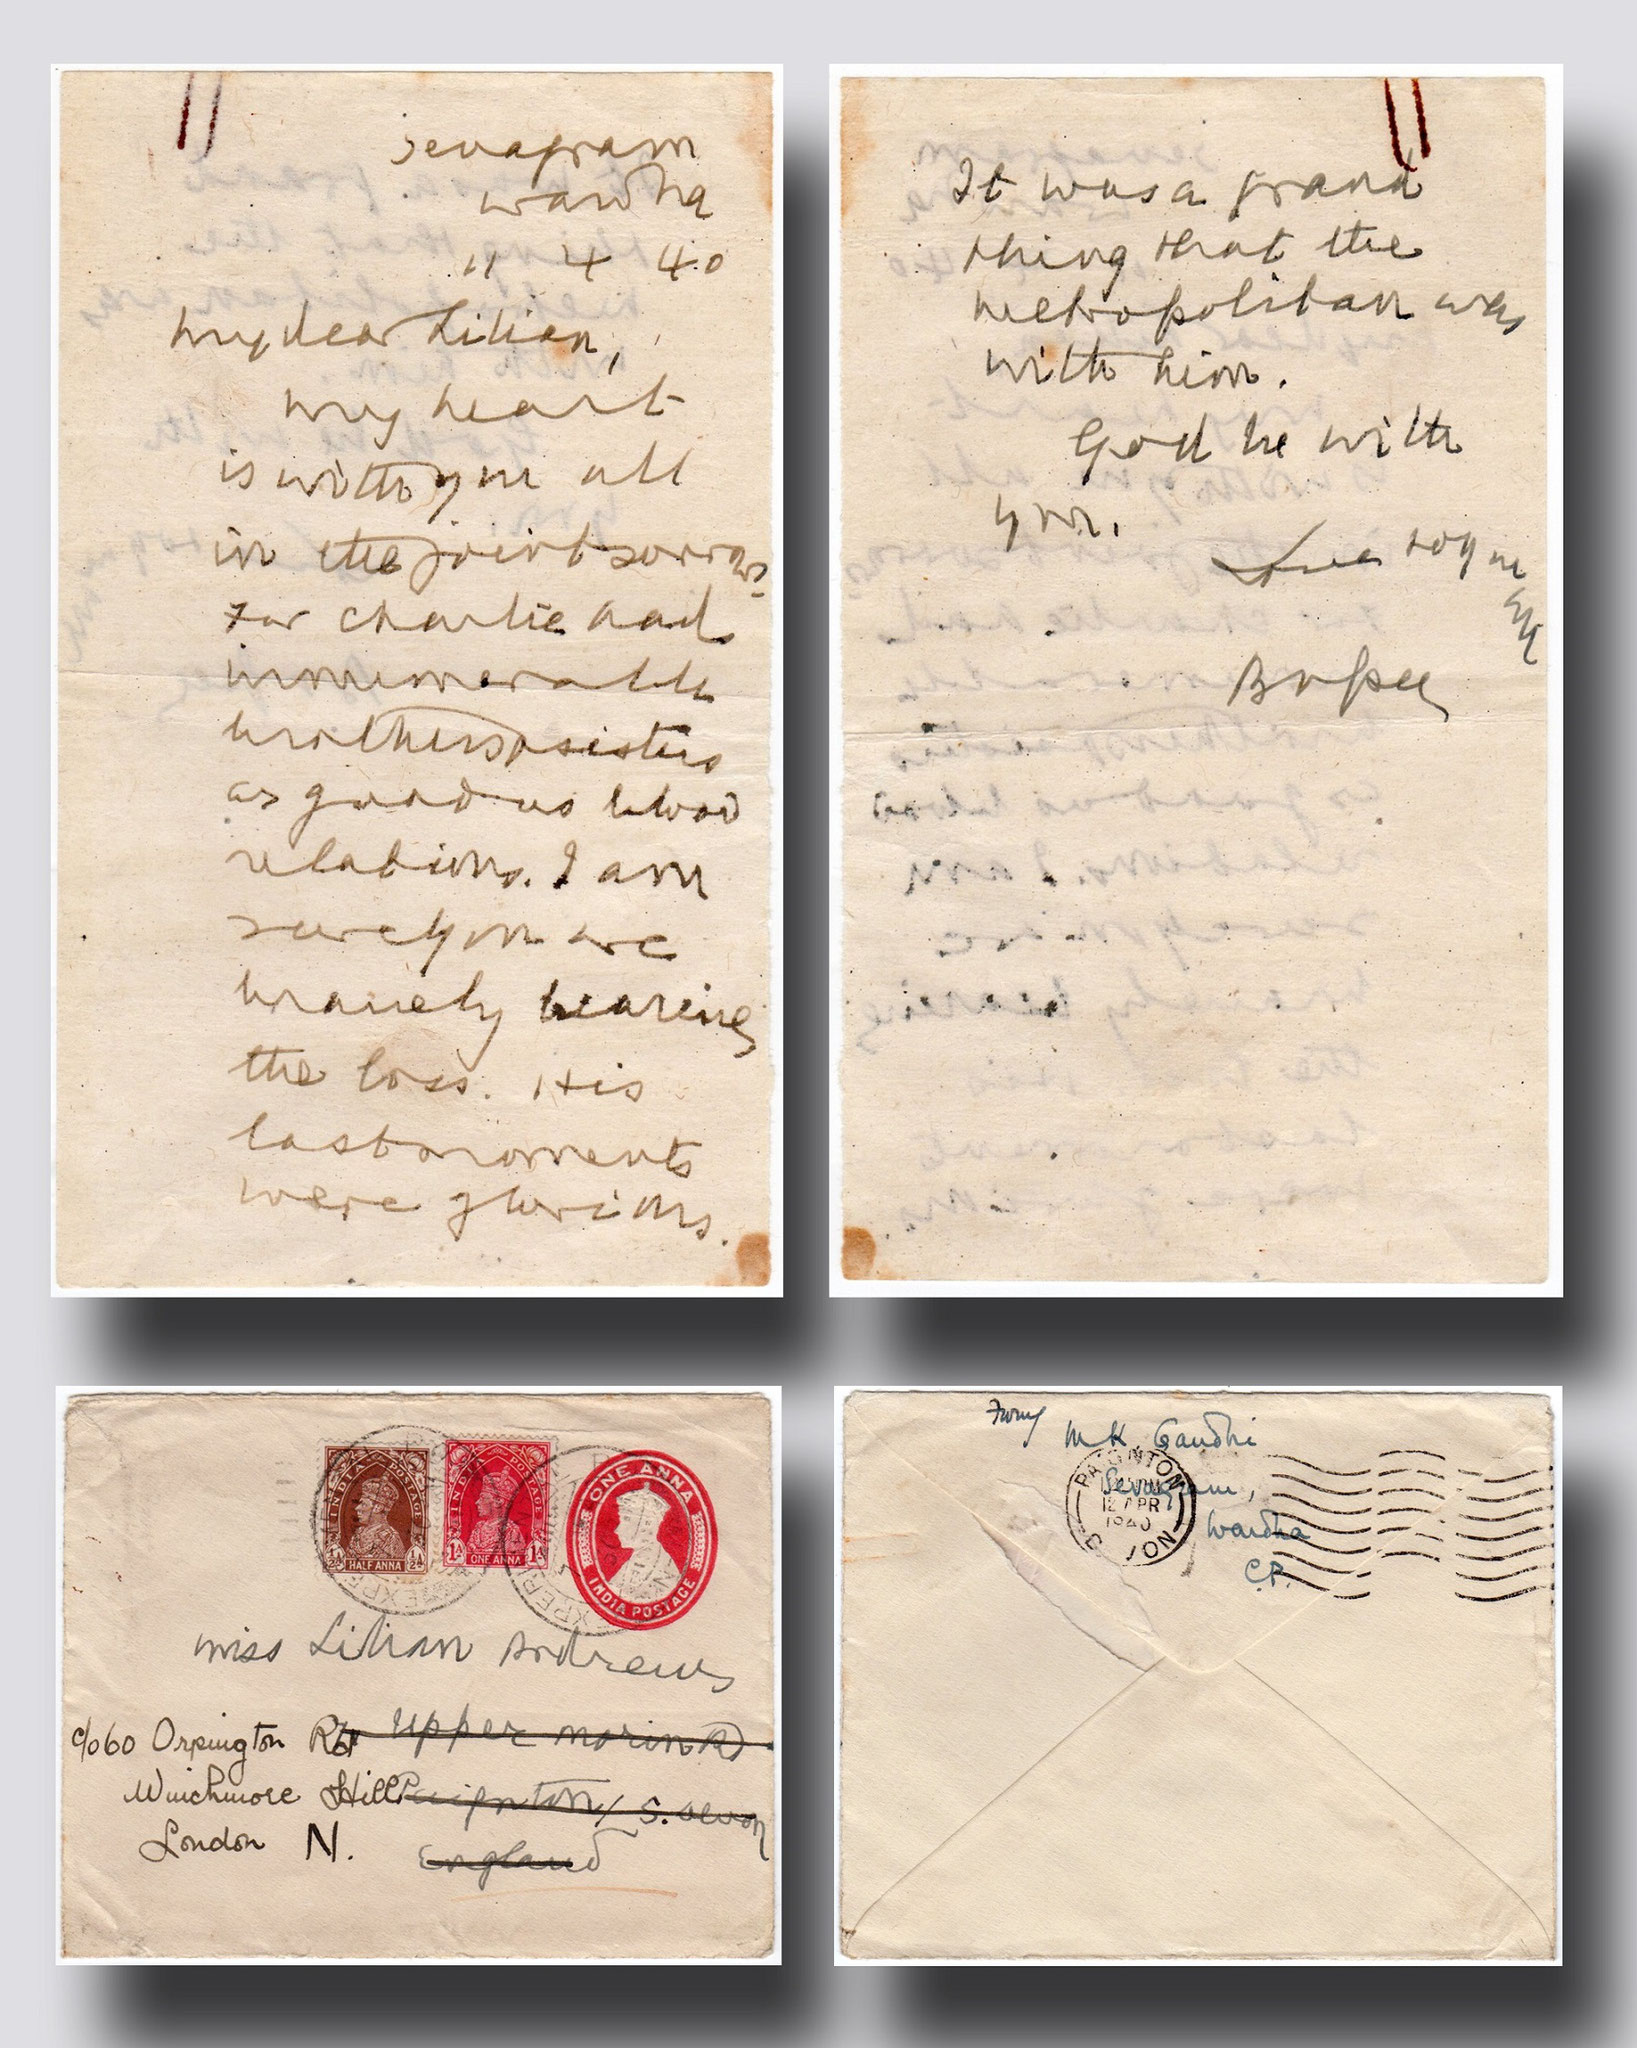 Sevagram
Wardha
11 4 40
My dear Lilian,
My heart
is with you all
in the joint sorrow
For Charlie had
innumerable
brothers & sisters
as good as blood
relations. I am
sure you are
bravely bearing
the loss. His
last moments
were glorious.
It was a grand
thing that the
Metropolitan was
with him.
God be with
you.
Love to you
all
Bapu
INDIA POSTAGE
½A HALF ANNA ½A
INDIA POSTAGE
1A ONE ANNA 1A
ONE ANNA
INDIA POSTAGE
Miss Lilian Andrews
Upper Morin Rd
Paignton / S. Devon
England
c/o 60 Orpington Rd
Winchmore Hill
London N.
From
MK Gandhi
Sevagram,
Wardha
C.P.
PAIGNTON
12 APR
1940
DEVON